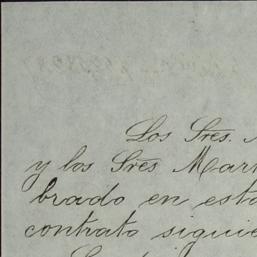 Los Sres.
y los Sres Mar
brado en esta
contrato siguie